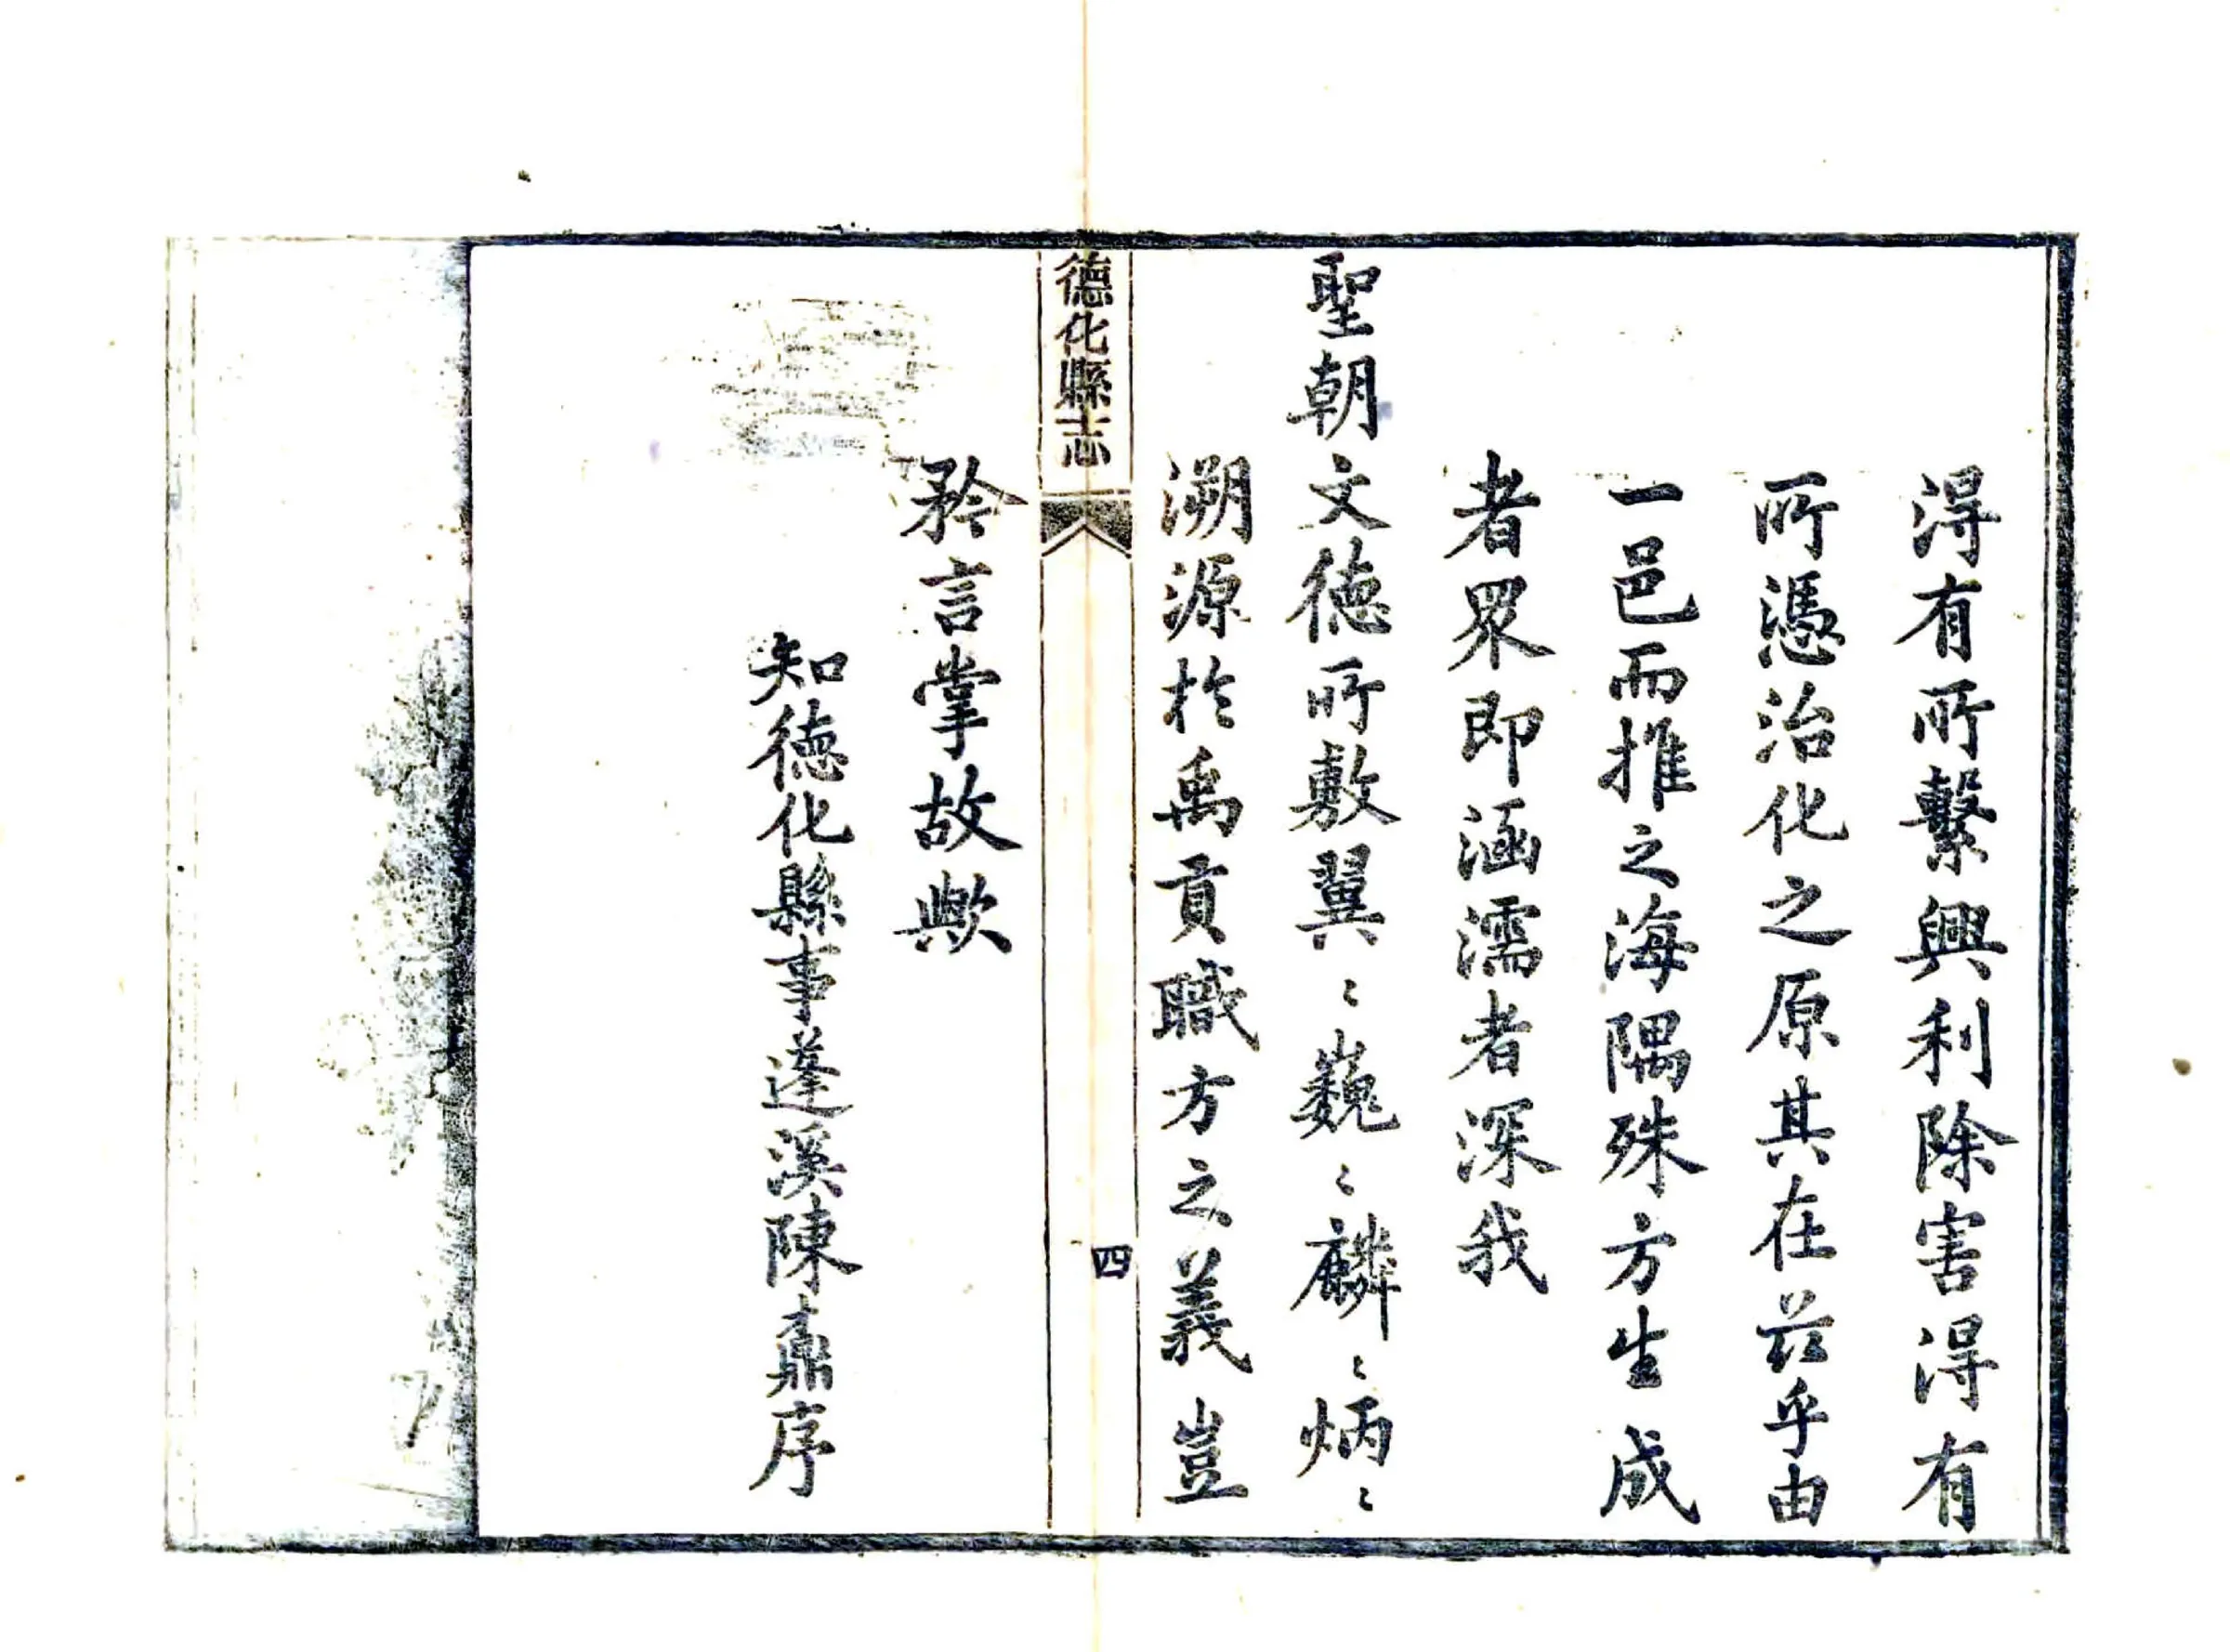 得有所繫興利除害得有
所憑治化之原其在茲乎由
一邑而推之海隅殊方生成
者眾即涵濡者深我
聖朝文德所敷翼〻巍〻麟〻炳〻
溯源於禹貢職方之義豈
德化縣志
四
矜言掌故歟
知德化縣事蓬溪陳鼒序